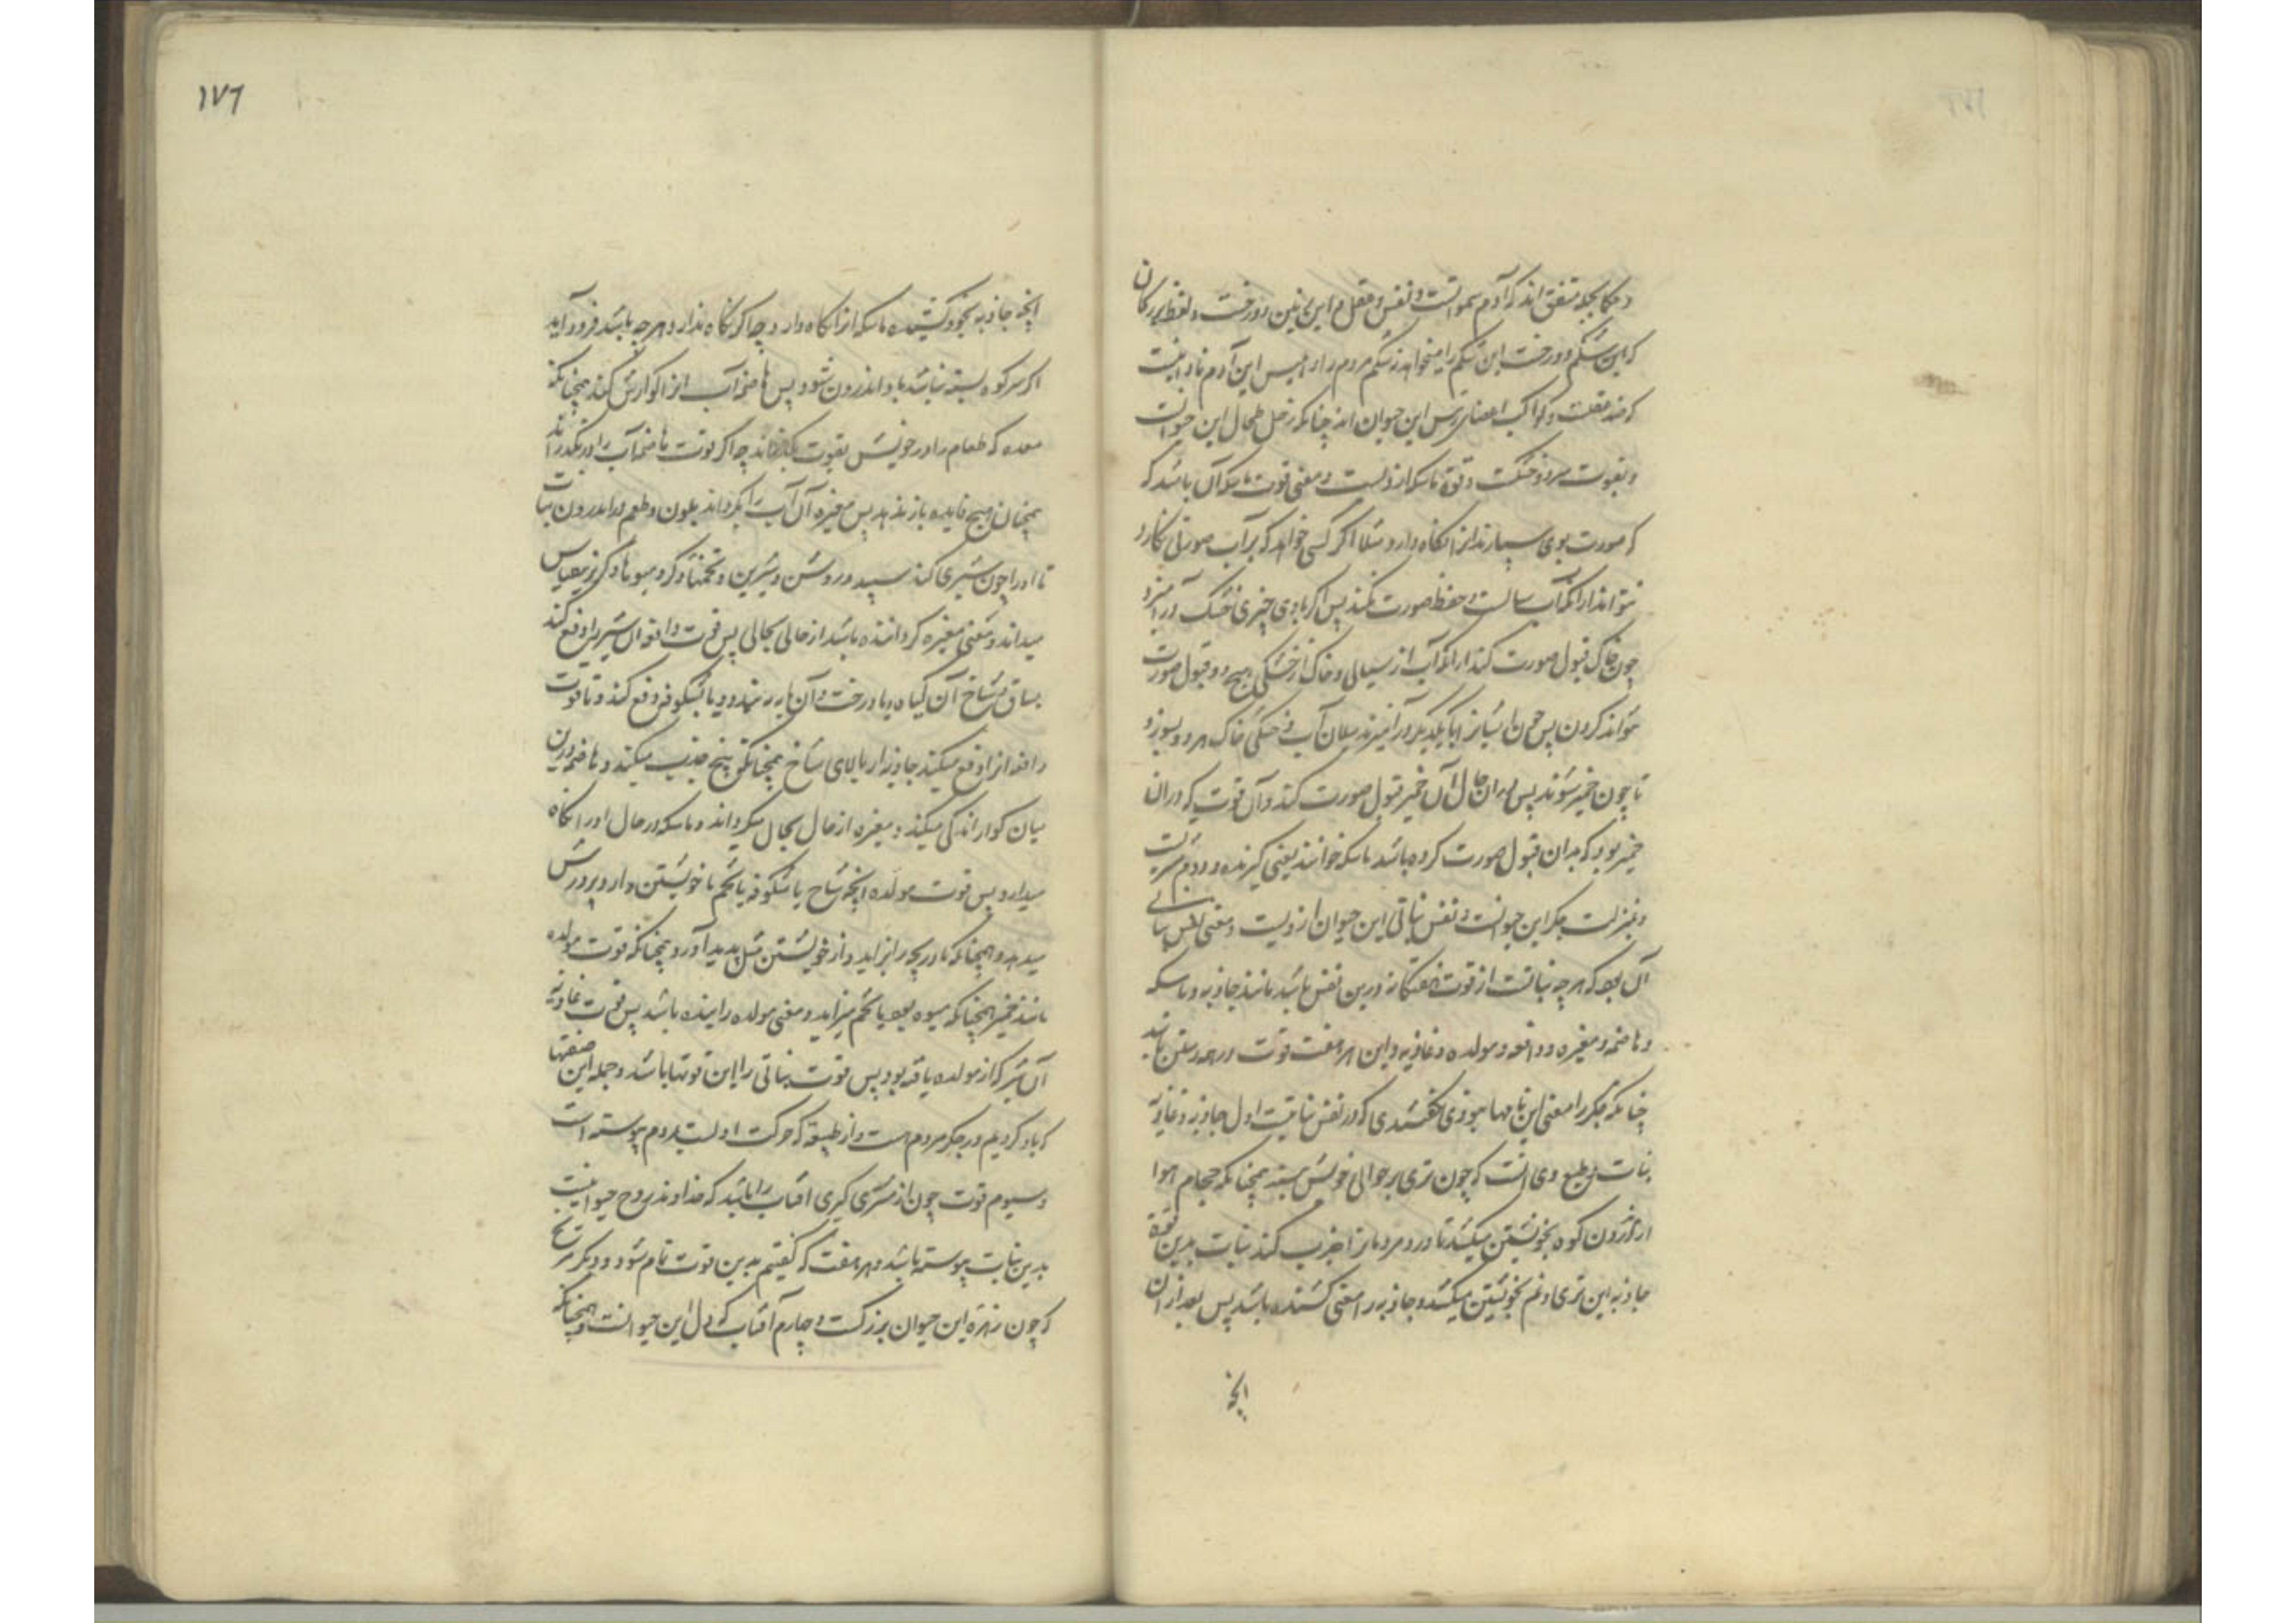 و حکما بجمله متفق اند که آدم سمواتست و نفس و عقل و ابر زمین دو درخت و لفظ بزرگان
که این شکم و درخت این شکم را میخواهد زشکم مردم را و ابلیس این آدم نادانیست
که ضد عقلست و کواکب اعضای رئیس این حیوان اند چنانکه زحل طحال این حیوانست
و بقوت سرد و خشکست و قوة ماسکه ازوست و معنی قوت ماسکه آن باشد که
که صورت بوی سپارند انرا نگاه دارد مثلا اگر کسی خواهد که بر آب صورتی نگارد
نتواند از انکه آب سیالست و حفظ صورت نکند پس اگر با وی چیزی خشک در آمیزد
چون خاک قبول صورت کند از انکه آب از سیالی و خاک از خشکی هیچ دو قبول صورت
نتواند کردن پس چون ایشانرا با یکدیگر در آمیزند سیلان آب و خشکی خاک هر دو بسوزد
تا چون خمیر شوند پس بدان حال آن خمیر قبول صورت کند و آن قوت که در آن
خمیر بود که بدان قبول صورت کرده باشد ماسکه خوانند یعنی گیرنده و دوم مشتریست
و بمنزلت جگر این حیوانست و نفس نباتی این حیوان ازویست و معنی نفس نباتی
آن بود که هر چه نباتست از قوت هفتگانه درین نفس باشد مانند جاذبه و ماسکه
و هاضمه و مغیره و دافعه و مولده و غاذیه و این هر هفت قوت در همه رستن باشد
چنانکه جگر را معنی این نامها بودی که در نفس نباتیست اول جاذبه و غاذیه
نبات و طبع وی آنست که چون تری بر حوالی خویش بیند همچنانکه حجام هوا
از اندرون کوه بخویشتن میکشد تا درد مردمانرا جذب کند نبات بدین قوة
جاذبه این تری و نم بخویشتن میکشد و جاذبه را معنی کشنده باشد پس بعد از ان
انچه
۱۷۶
انچه جاذبه بخود کشیده ماسکه انرا نگاه دارد چه اگر نگاه ندارد هر چه باشد فرود آید
اگر سر کوه بسته نباشد باد اندرون شود پس هاضمه آب انرا گوارش کند همچنانکه
معده که طعام را در خویش بقوت بگذارند چه اگر قوت هاضمه آب را در نگذراند
همچنان هیچ فایده باز ندهد پس مغیره آن آب را بگرداند بلون و طعم در اندرون نبات
تا او را چون شیری کند سپید و روشن و شیرین و تخمها و کرد میوها دگر برین قیاس
میداند و معنی مغیره گرداننده باشد از حالی بحالی پس قوت دافعه آن شیر را دفع کند
بساق و شاخ آن گیاه و با درخت و آن بار بر نهد و یا بشکوفه دفع کند و تا قوت
دافعه انرا دفع میکند جاذبه از بالای شاخ همچنانکه بیخ جذب میکند و هاضمه در این
میان گوارانندگی میکند و مغیره از حال بحال میگرداند و ماسکه در حال او را نگاه
میدارد پس قوت مولده انچه شاخ یا شکوفه یا تخم با خویشتن دارد پرورش
میدهد و همچنانکه مادر بچه را بزاید و از خویشتن مثل پدید آورد همچنانکه قوت مولده
مانند خمیر همچنانکه میوه بود یا تخم میزاید و معنی مولده زاینده باشد پس قوت غاذیه
آن شیر که از مولده یافته بود پس قوت نباتی را این قوتها باشد و جمله این صفتها
که یاد کردیم در جگر مردم هست و از طبیعه که حرکت اولست بمردم پیوسته است
و سیوم قوت چون از مشتری گیری آفتاب را باشد که خداوند روح حیوانیست
بدین نبات پیوسته باشد و هر هفت که گفتیم بدین قوت تام شود و دیگر مریخ
که چون زهره این حیوان بزرگست و چارم آفتاب که دل این حیوانست و همچنانکه